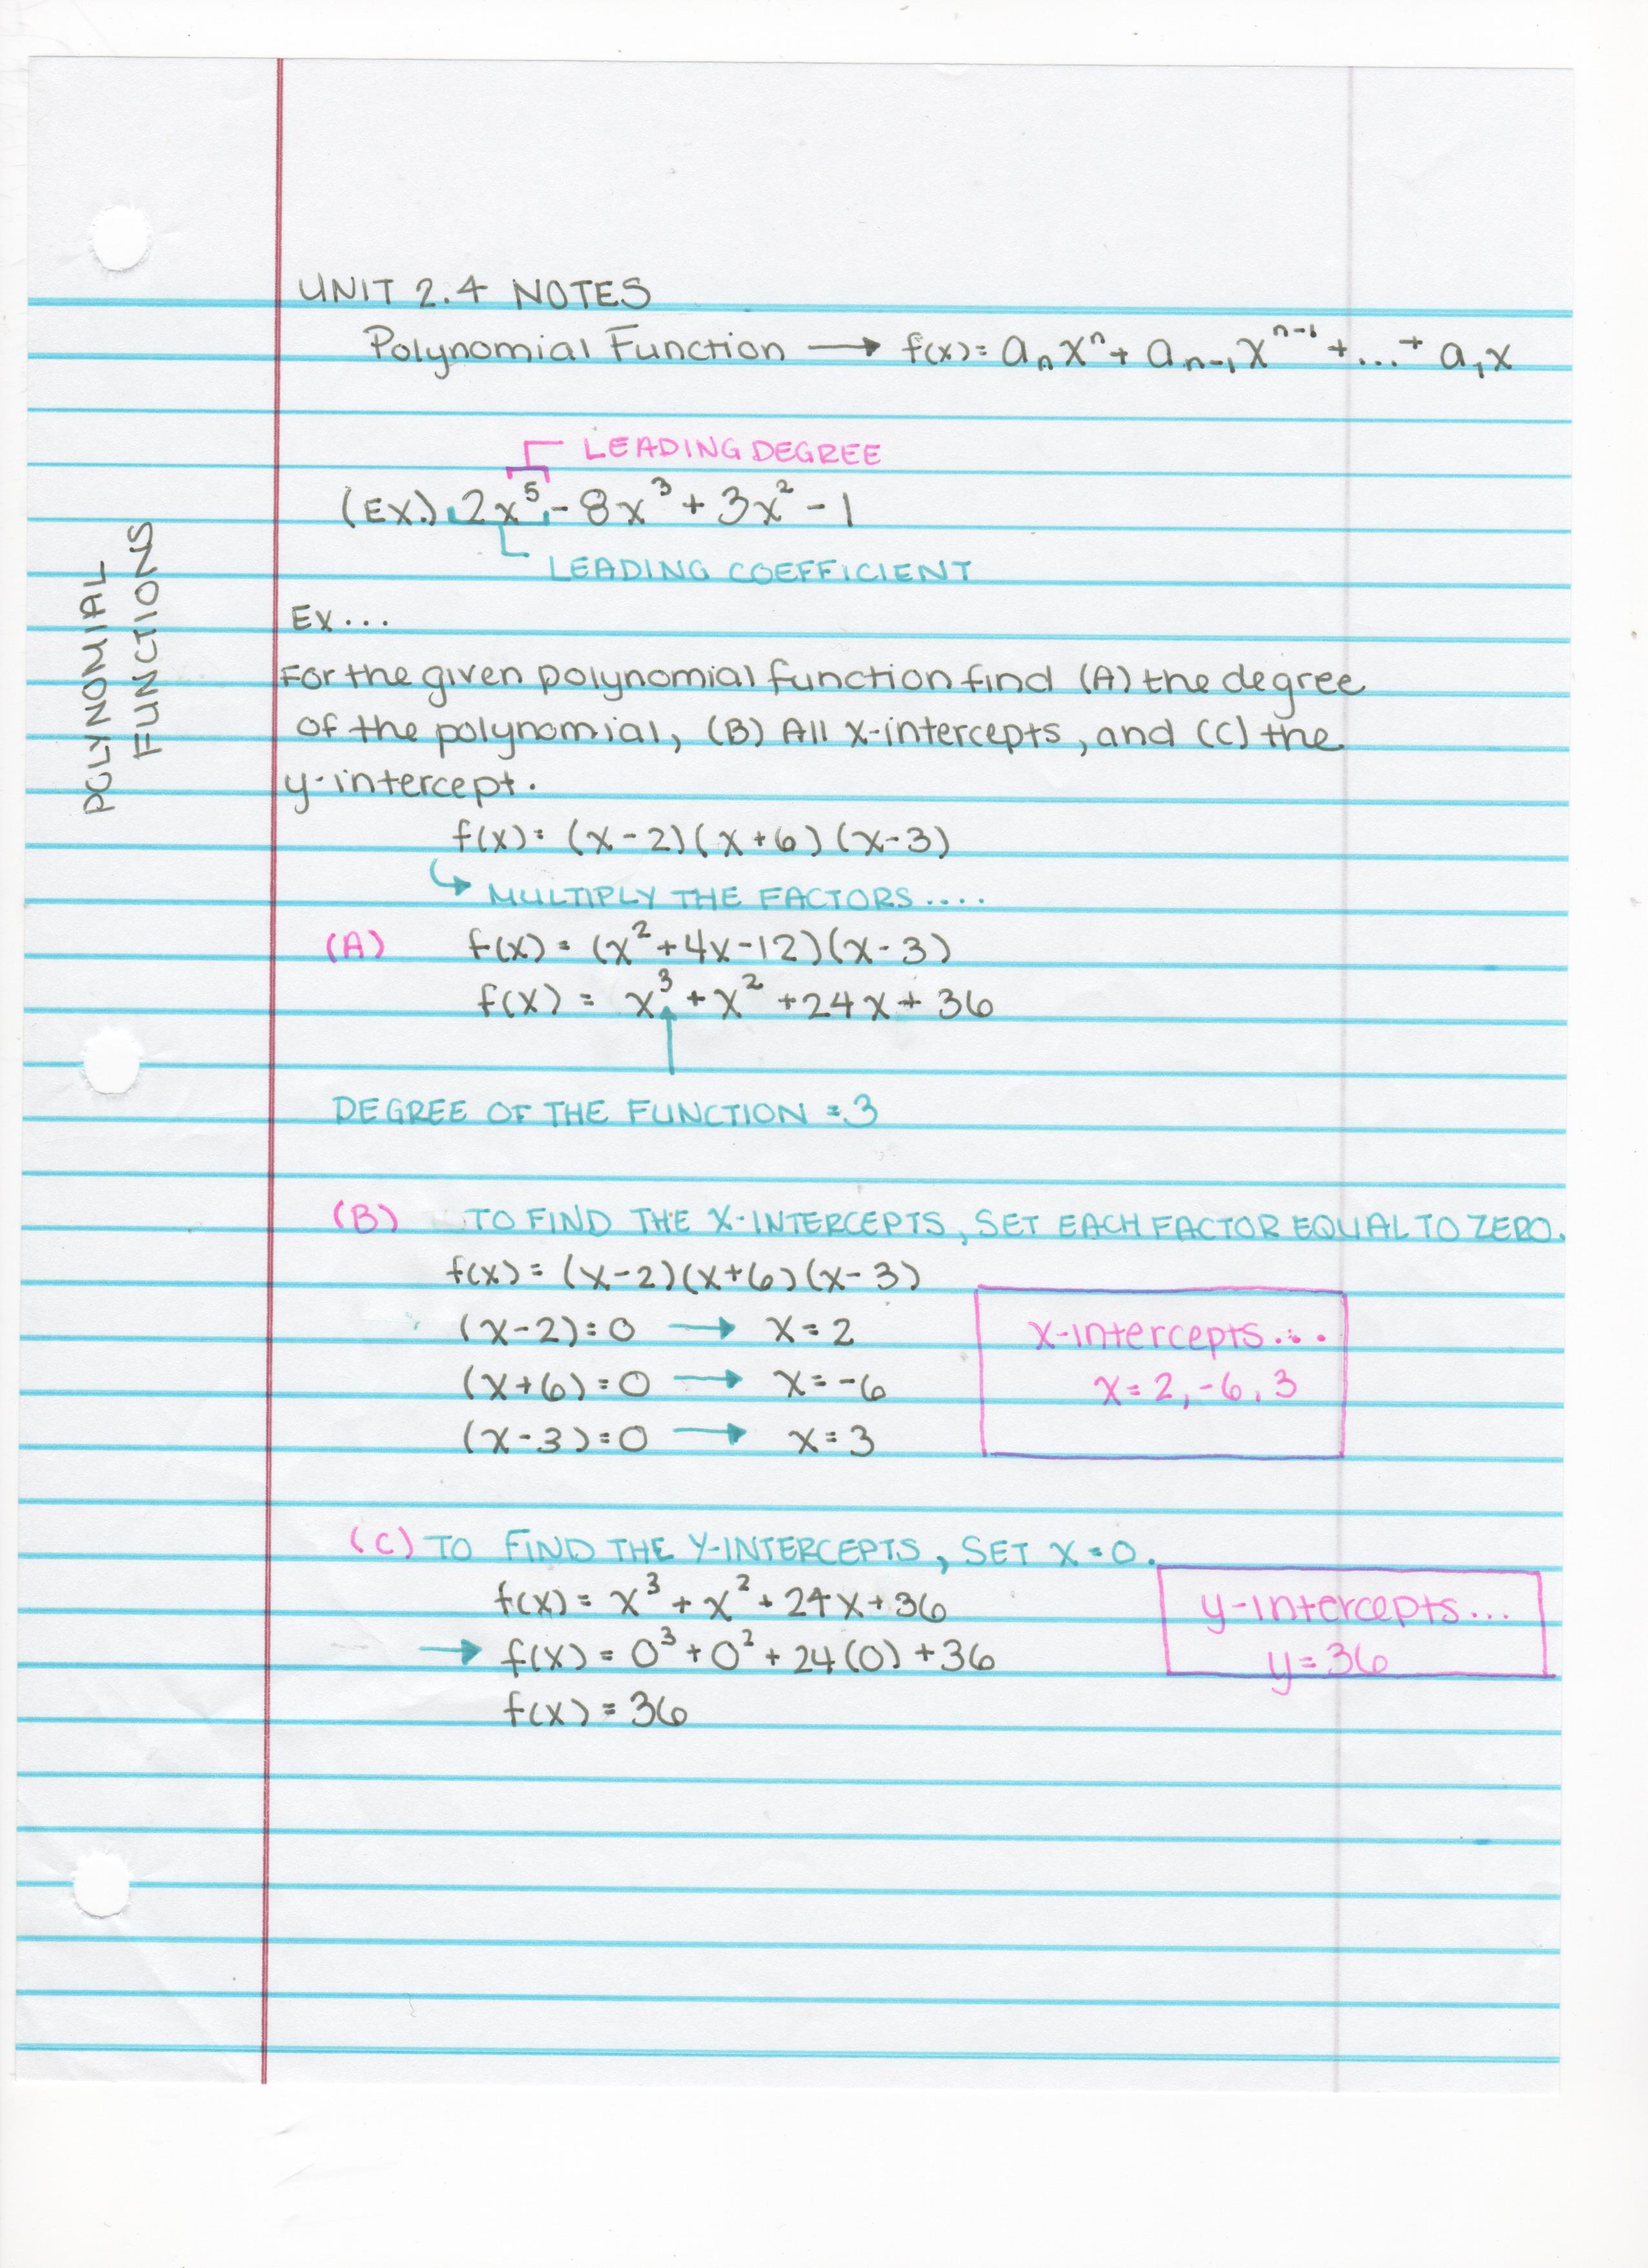 UNIT 2.4 NOTES
Polynomial Function → f(x) = aₙxⁿ + aₙ₋₁xⁿ⁻¹ + ... + a₁x
LEADING DEGREE
(EX.) 2x⁵ - 8x³ + 3x² - 1
LEADING COEFFICIENT
POLYNOMIAL
FUNCTIONS
Ex...
For the given polynomial function find (A) the degree
of the polynomial, (B) All x-intercepts, and (C) the
y-intercept.
f(x) = (x-2)(x+6)(x-3)
↳ MULTIPLY THE FACTORS....
(A) f(x) = (x²+4x-12)(x-3)
f(x) = x³ + x² + 24x + 36
DEGREE OF THE FUNCTION = 3
(B) TO FIND THE X-INTERCEPTS, SET EACH FACTOR EQUAL TO ZERO.
f(x) = (x-2)(x+6)(x-3)
(x-2)=0 → x=2
(x+6)=0 → x=-6
(x-3)=0 → x=3
x-intercepts...
x=2,-6,3
(C) TO FIND THE Y-INTERCEPTS, SET X=0.
f(x) = x³ + x² + 24x + 36
→ f(x) = 0³ + 0² + 24(0) + 36
f(x) = 36
y-intercepts...
y=36